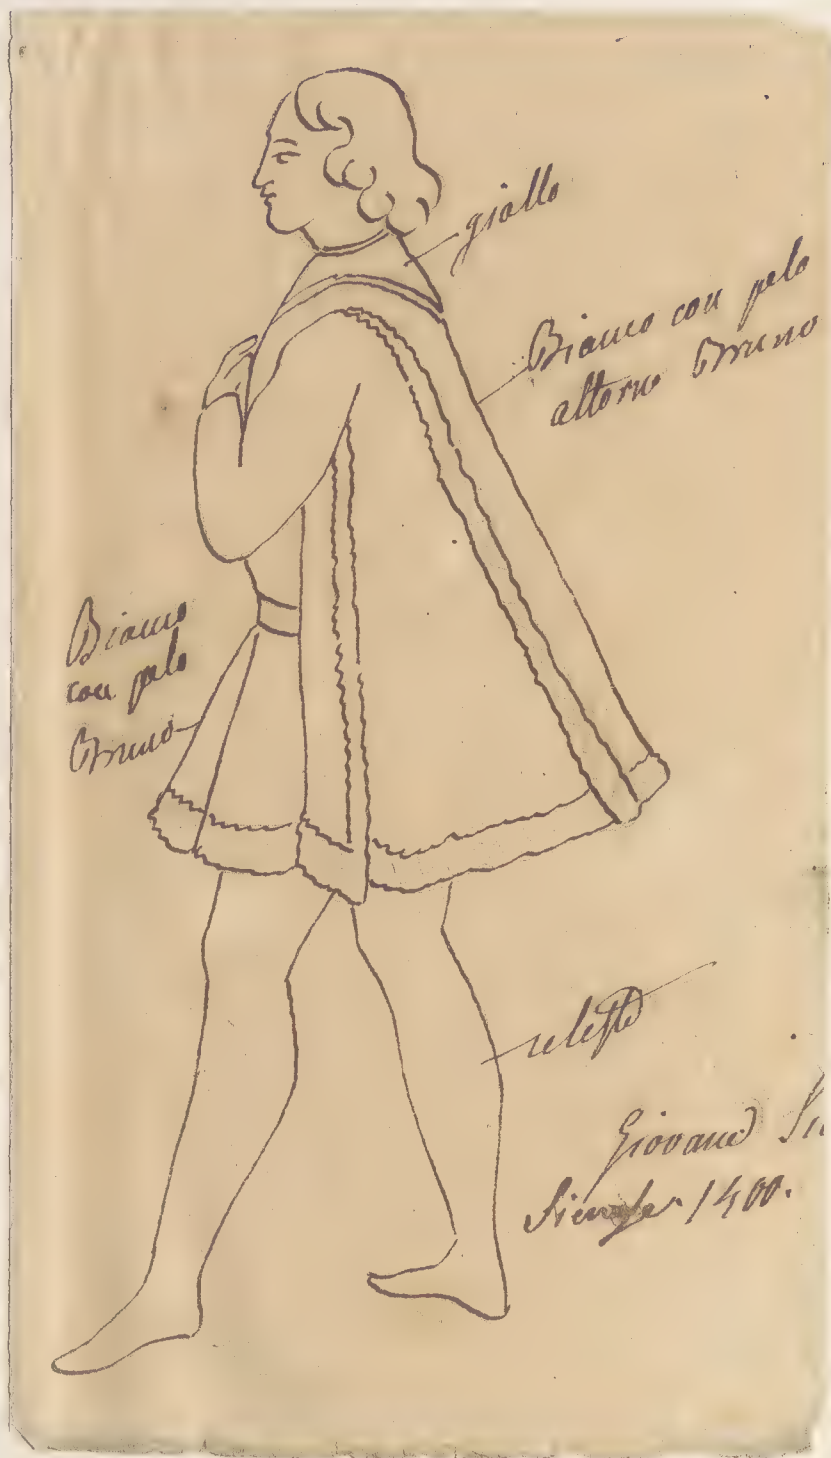 giallo
Bianco con pelo
attorno Bruno
Bianco
con pelo
Bruno
celeste
Giovane
Sienese 1400.